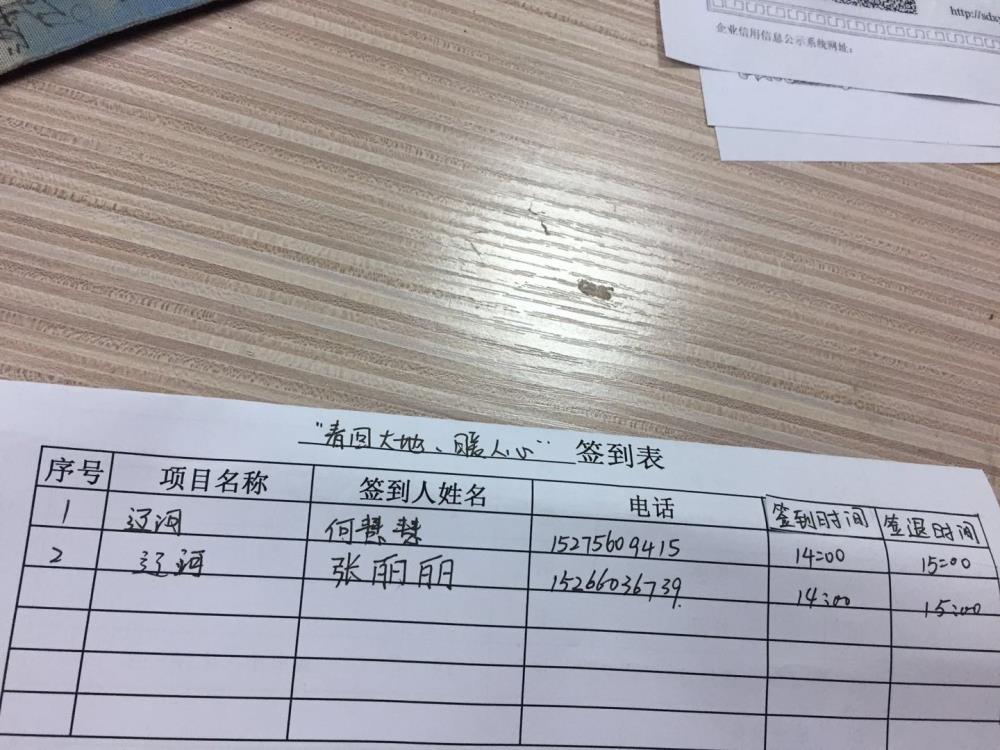 http://sdx
企业信用信息公示系统网址:
"春回大地、暖人心" 签到表
序号 项目名称 签到人姓名 电话 签到时间 签退时间
1 辽河 何慧慧 15275609415 14:00 15:00
2 辽河 张丽丽 15266036739. 14:00 15:00